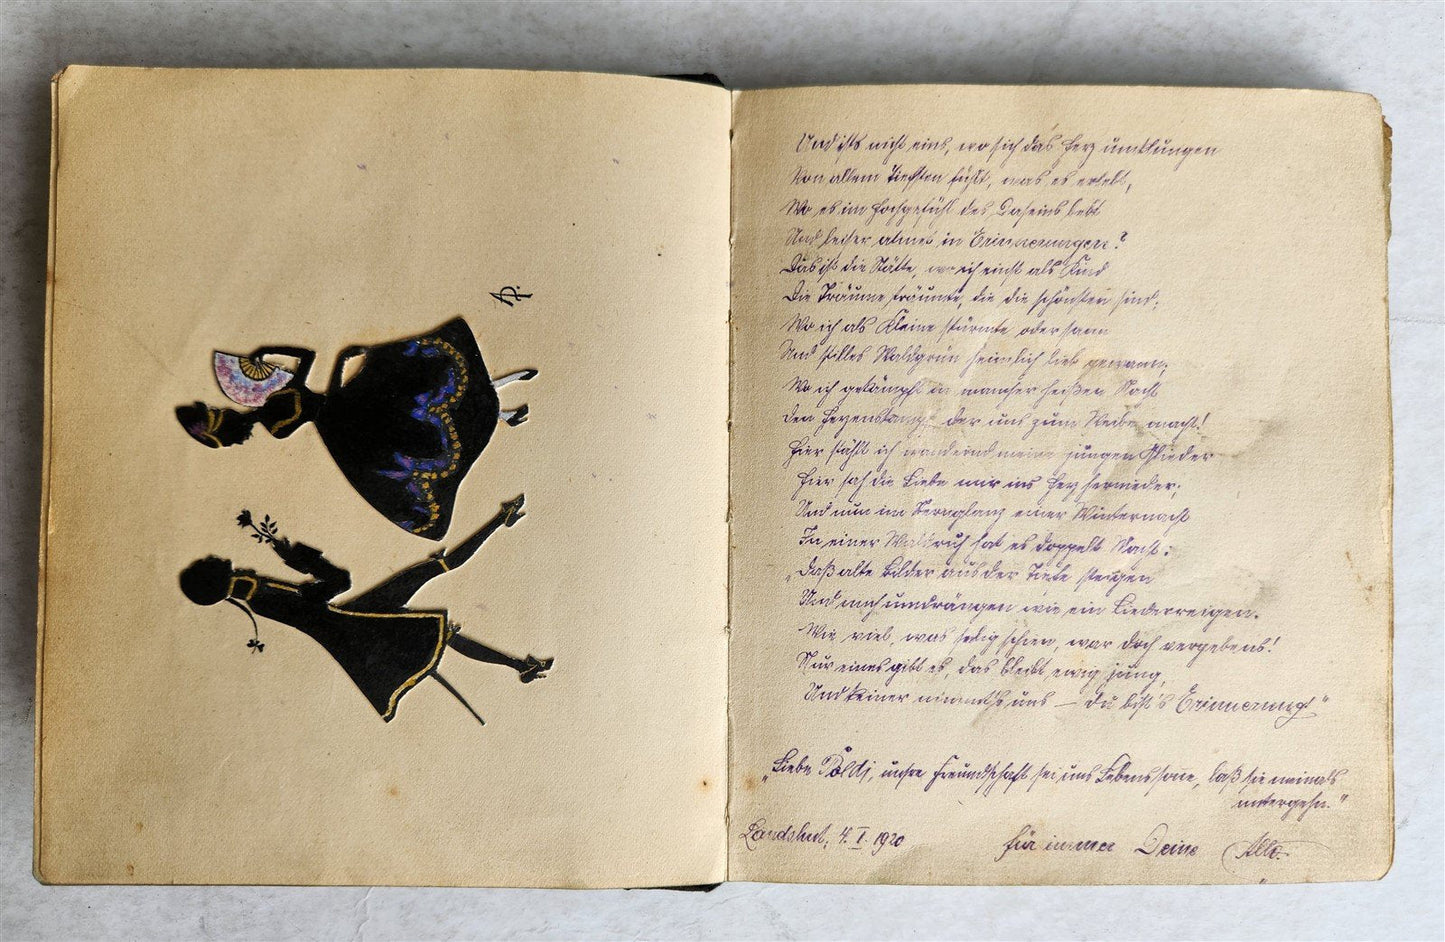 AP.
Und ist's nicht eins, wo sich das Herz umklungen
Von allem Tiefsten fühlt, was es erlebt,
Wo es im Hochgefühl des Daseins bebt
Und leiser atmet in Erinnerungen?
Das ist die Stätte, wo ich einst als Kind
Die Träume träumte, die die schönsten sind;
Wo ich als Kleine stürmte oder sann
Und stilles Waldgrün heimlich lieb gewann.
Wo ich gekämpft in mancher heißen Nacht
Den Herzenskampf, der uns zum Weibe macht!
Hier stählt ich wandernd meine jungen Glieder
Hier sah die Liebe mir ins Herz hernieder;
Und nun im Sternglanz einer Winternacht
In einer Waldruh hat es doppelt Macht:
„Daß alte Bilder aus der Tiefe steigen
Und mich umdrängen wie ein Liederreigen.
Wie viel, was selig schien, war doch vergebens!
Nur eines gibt es, das bleibt ewig jung,
Und keiner nimmt's uns — du bist's Erinnerung!"
„Liebe Poldi, unsre Freundschaft sei uns Lebenssonne, laß sie niemals
untergehn."
Landshut, 4. I. 1920 Für immer Deine